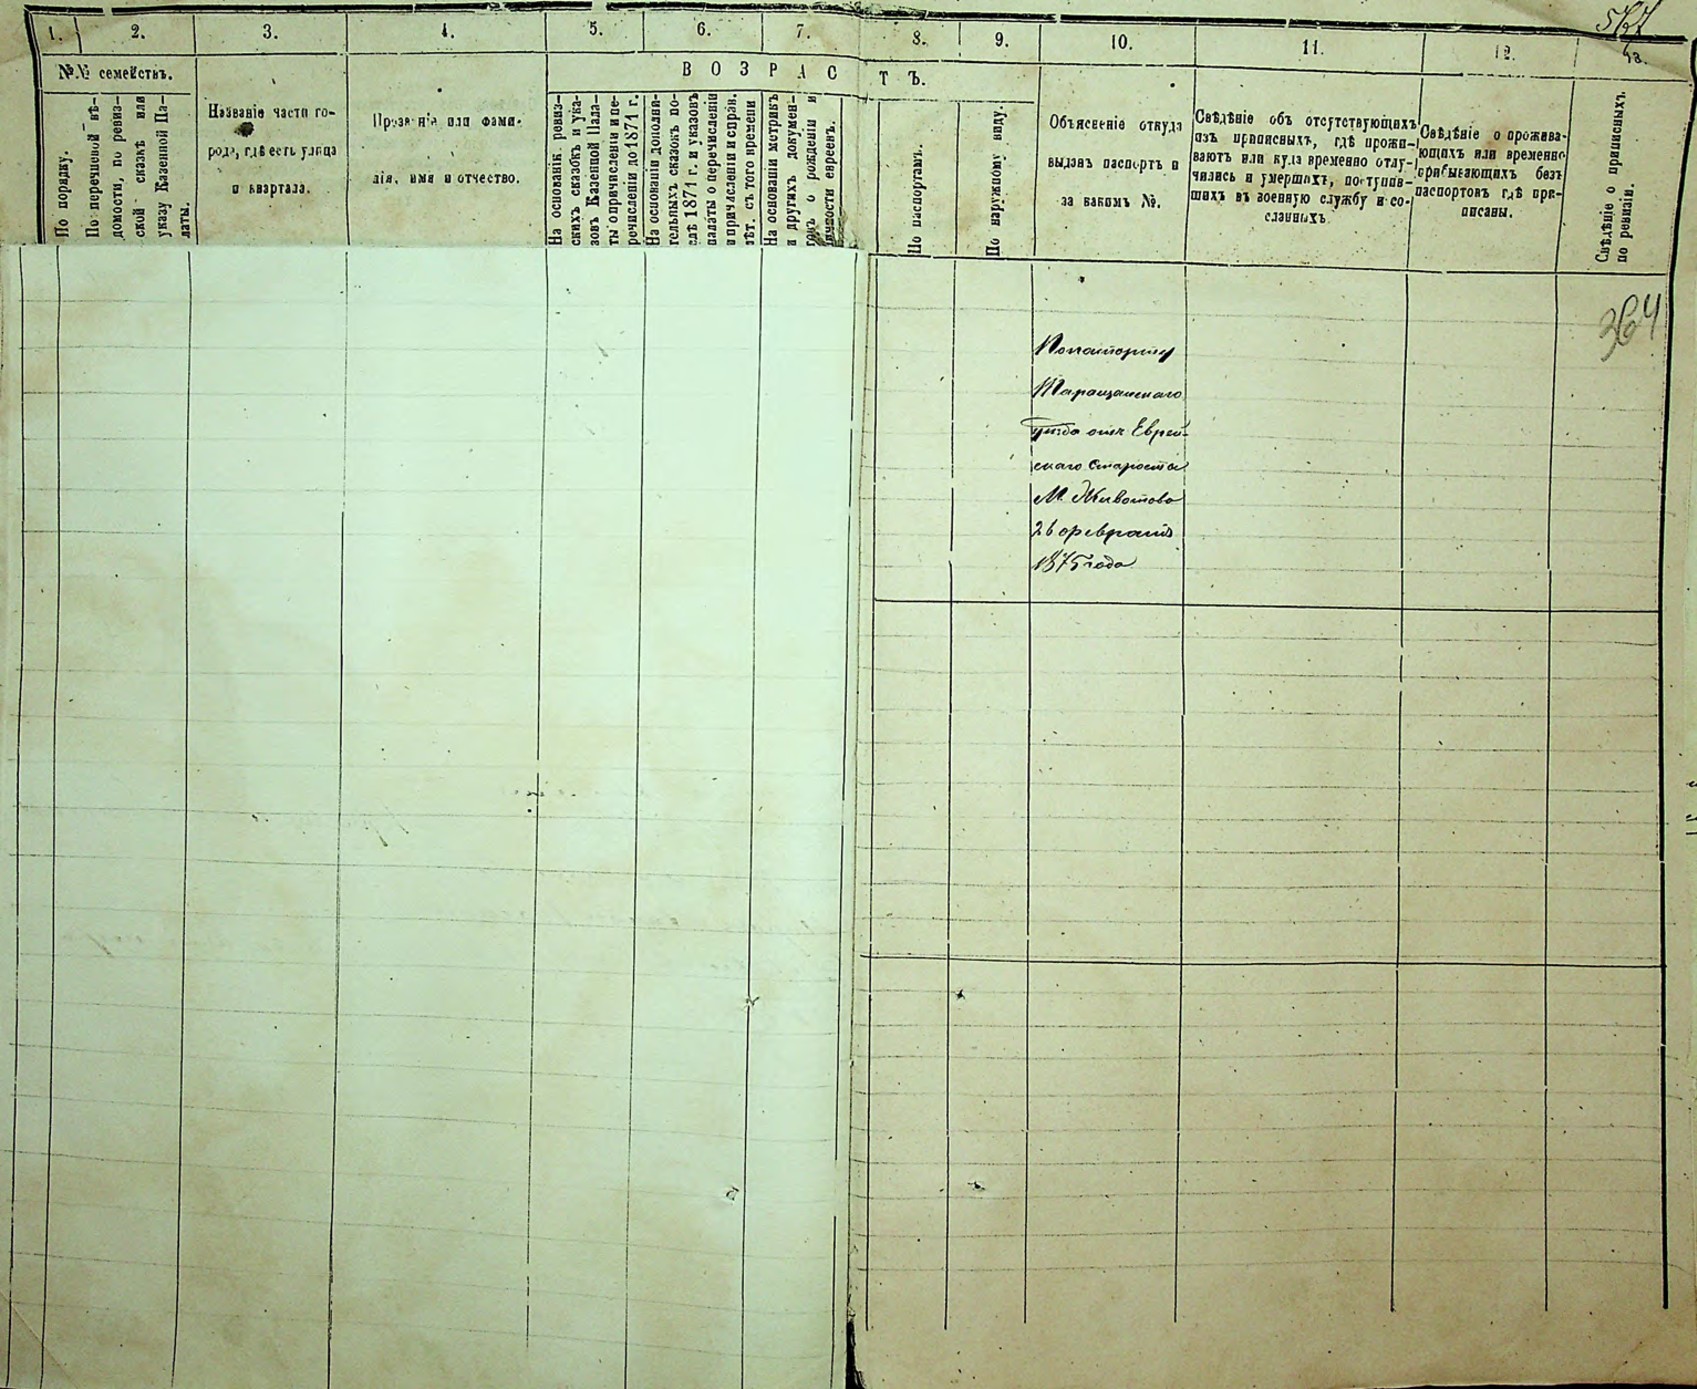 1.
2.
3.
4.
5.
6.
7.
8.
9.
10.
11.
12.
№№ семействъ.
ВОЗРАСТЪ.
По порядку.
По перечневой вѣ-
домости, по ревиз-
ской сказкѣ или
указу Казенной Па-
латы.
Названіе части го-
рода, гдѣ есть улица
и кварталъ.
Прозваніе или фами-
лія, имя и отчество.
На основаніи ревиз-
скихъ сказокъ и ука-
зовъ Казенной Пала-
ты о причисленіи и пе-
речисленіи до 1871 г.
На основаніи дополни-
тельныхъ сказокъ по-
слѣ 1871 г. и указовъ
палаты о перечисленіи
и причисленіи и справ.
лѣт. съ того времени
На основаніи метрикъ
и другихъ докумен-
товъ о рожденіи и
личности евреевъ.
По паспортамъ.
По наружному виду.
Объясненіе откуда
выданъ паспортъ и
за какимъ №.
Свѣдѣніе объ отсутствующихъ
изъ приписныхъ, гдѣ прожи-
ваютъ или куда временно отлу-
чились и умершихъ, поступив-
шихъ въ военную службу и со-
сланныхъ.
Свѣдѣніе о прожива-
ющихъ или временно
прибывающихъ безъ
паспортовъ гдѣ при-
писаны.
Свѣдѣніе о приписныхъ
по ревизіи.
364
По паспорту
Таращанскаго
уѣзда отъ Еврей-
скаго Старосты
М. Животова
26 февраля
1875 года